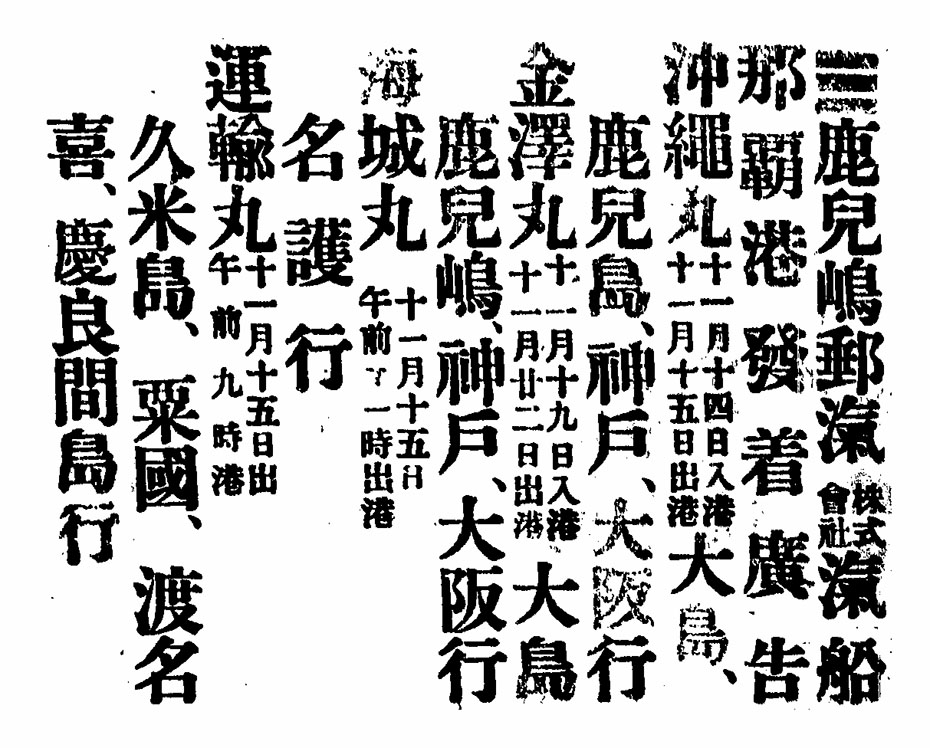 ☰鹿兒嶋郵滊株式會社滊船
那覇港發着廣告
沖繩丸十一月十四日入港十一月十五日出港大島、
鹿兒島、神戶、大阪行
金澤丸十一月十九日入港十一月廿二日出港大島
鹿兒嶋、神戶、大阪行
海城丸十一月十五日午前十一時出港
名護行
運輸丸十一月十五日出午前九時港
久米島、粟國、渡名
喜、慶良間島行